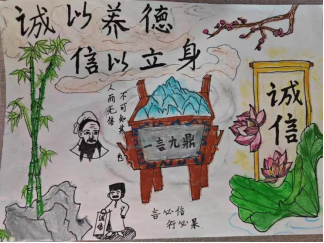 诚以养德
信以立身
人而无信
一言九鼎
诚信
言必信
行必果